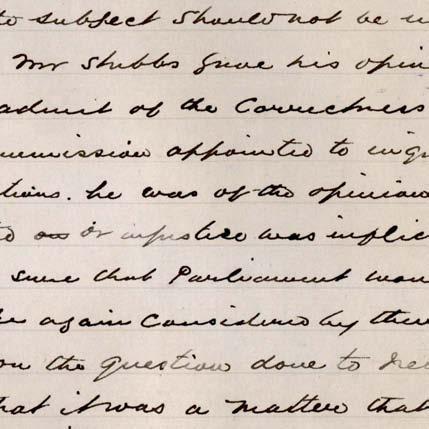 to subject should not be u
Mr Stubbs gave his opin
admit of the Correctness
mmission appointed to inqu
tions. he was of the opinion
or injustice was inflic
sure that Parliament wou
again Considered by them
on the question done to
hat it was a matter that